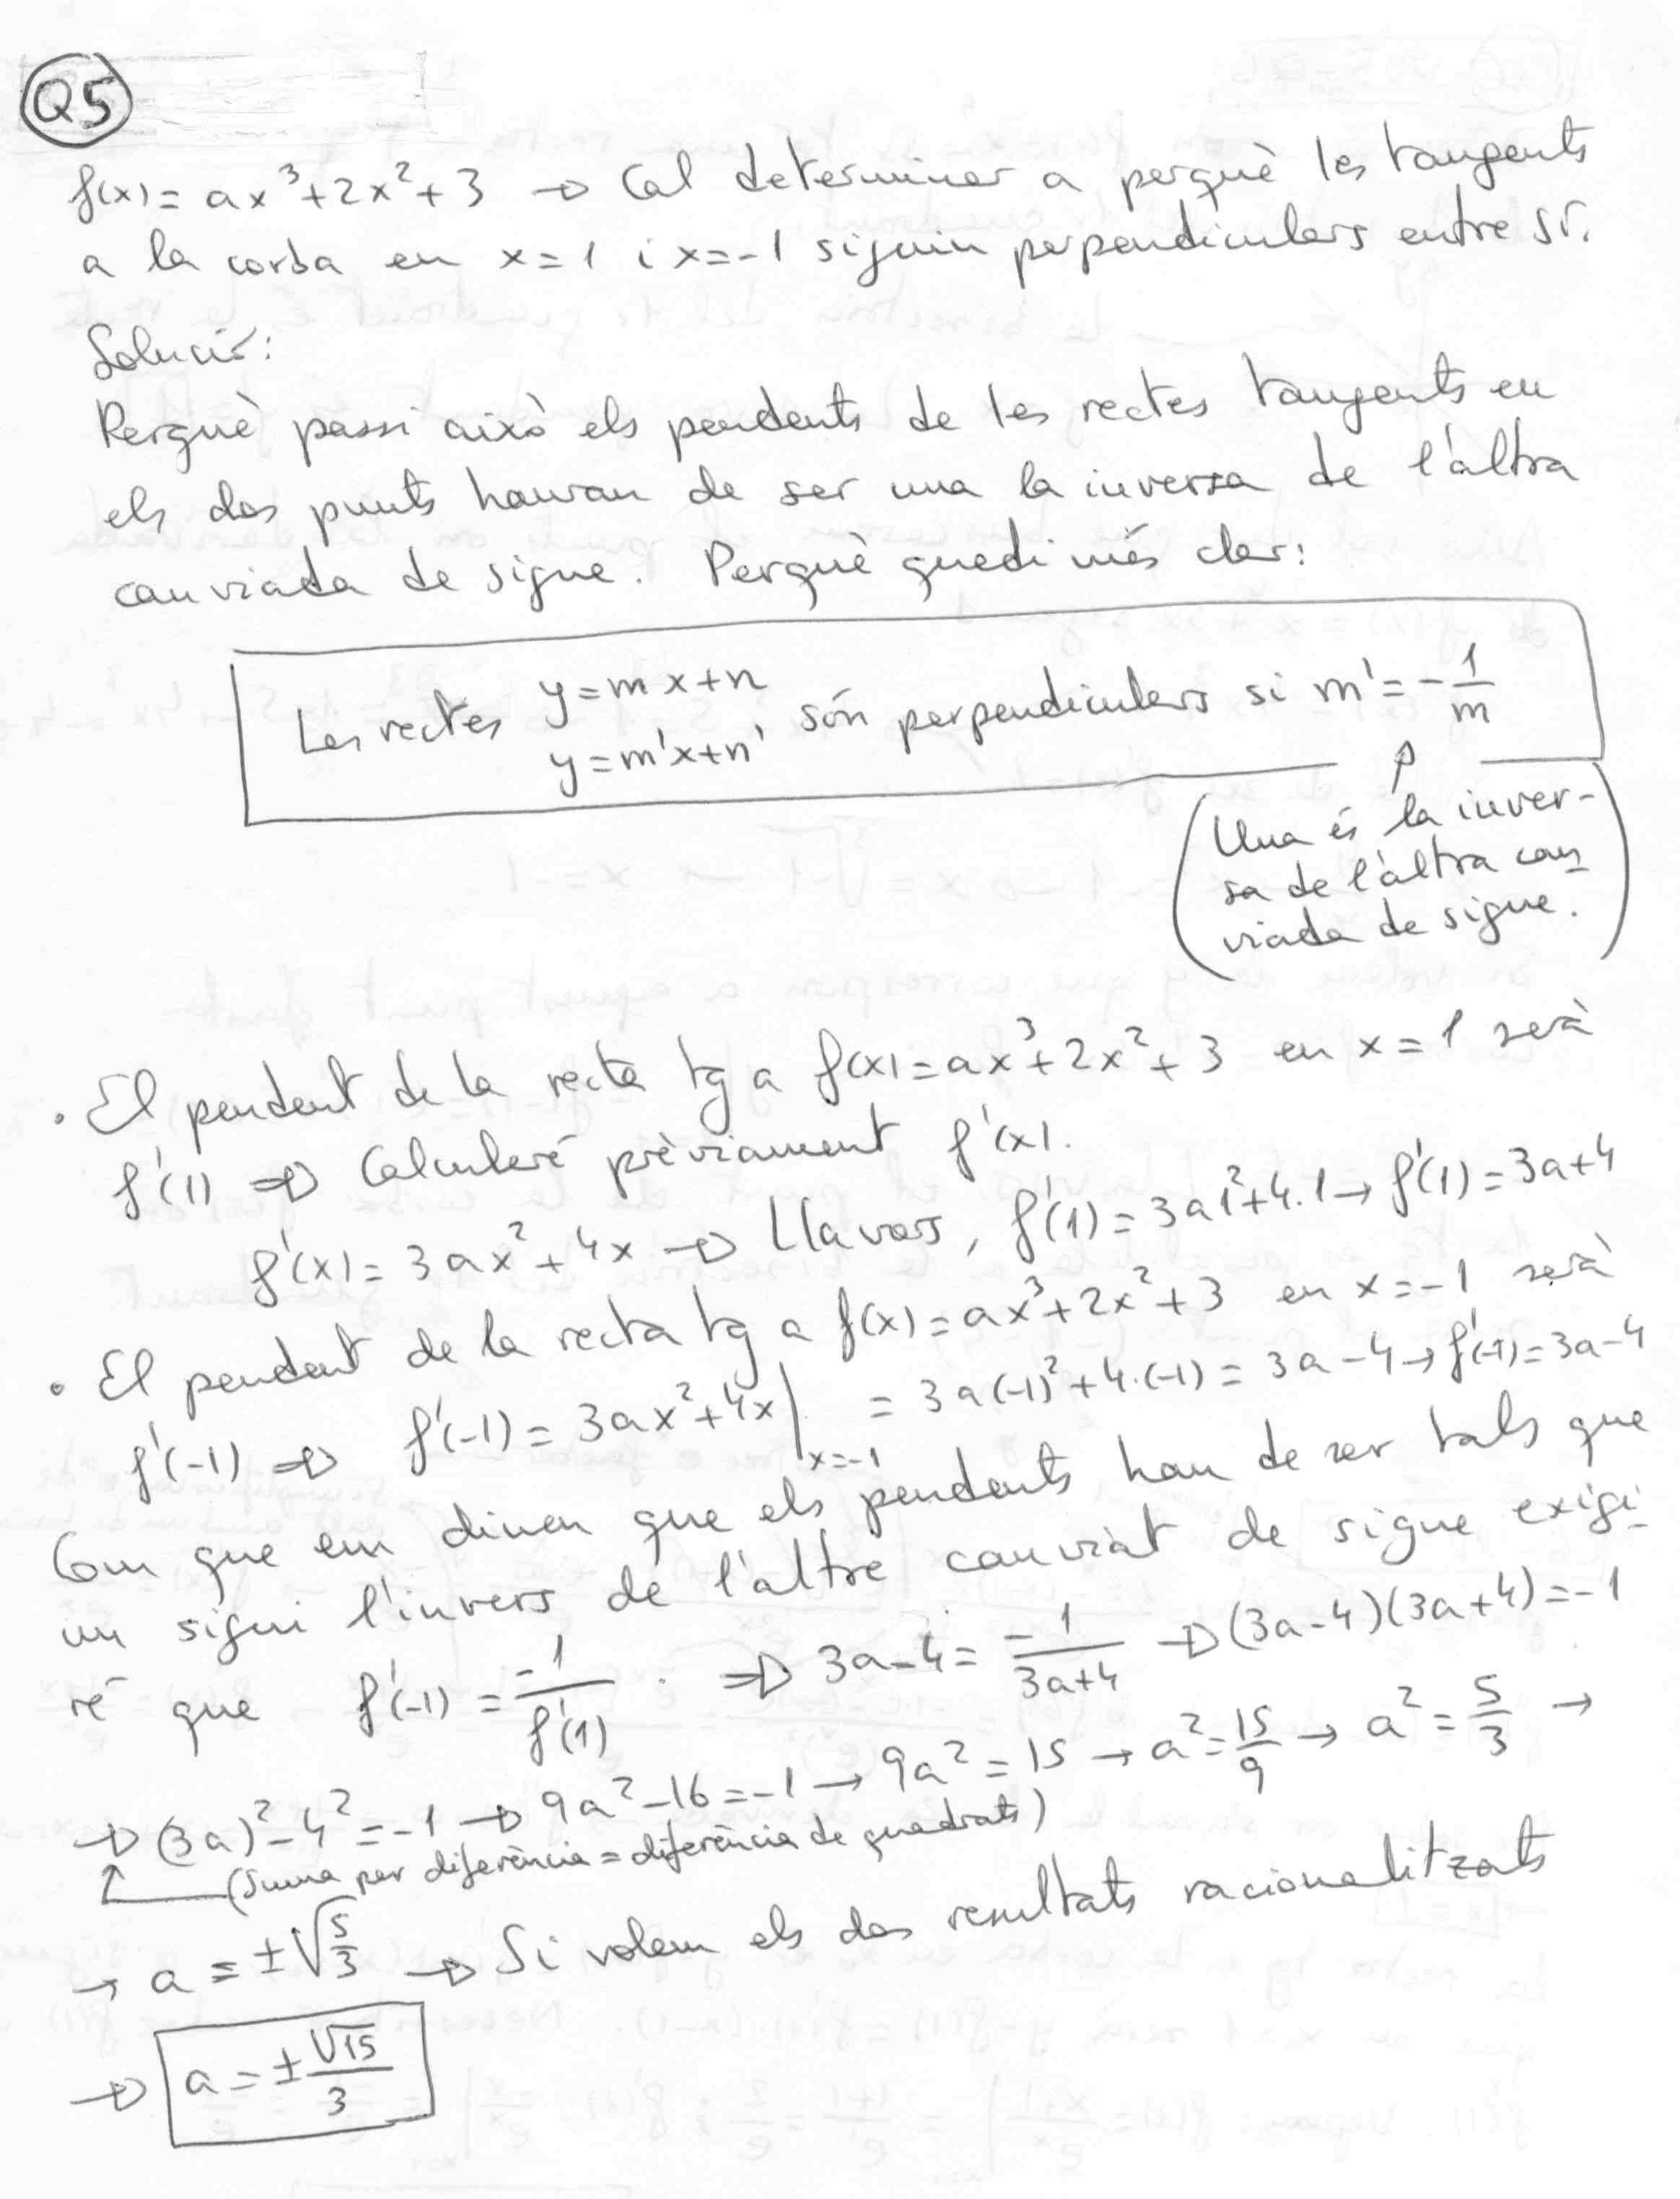 Q5
f(x) = ax³+2x²+3 → Cal determinar a perquè les tangents
a la corba en x=1 i x=-1 siguin perpendiculars entre sí.
Solució:
Perquè passi això els pendents de les rectes tangents en
els dos punts hauran de ser una la inversa de l'altra
canviada de signe. Perquè quedi més clar:
Les rectes y=mx+n
y=m'x+n' són perpendiculars si m'=-1/m
(Una és la inver-
sa de l'altra can-
viada de signe.)
• El pendent de la recta tg a f(x)=ax³+2x²+3 en x=1 serà
f'(1) ⇒ Calcularé prèviament f'(x).
f'(x)=3ax²+4x → Llavors, f'(1)=3a1²+4·1→ f'(1)=3a+4
• El pendent de la recta tg a f(x)=ax³+2x²+3 en x=-1 serà
f'(-1) ⇒ f'(-1)=3ax²+4x|x=-1 = 3a(-1)²+4·(-1)=3a-4→f'(-1)=3a-4
Com que em diuen que els pendents han de ser tals que
un sigui l'invers de l'altre canviat de signe exigi-
ré que f'(-1)=-1/f'(1). ⇒ 3a-4=-1/(3a+4) → (3a-4)(3a+4)=-1
→ (3a)²-4²=-1 → 9a²-16=-1 → 9a²=15 → a²=15/9 → a²=5/3 →
(Suma per diferència = diferència de quadrats)
→ a=±√(5/3) → Si volem els dos resultats racionalitzats
→ a=±√15/3